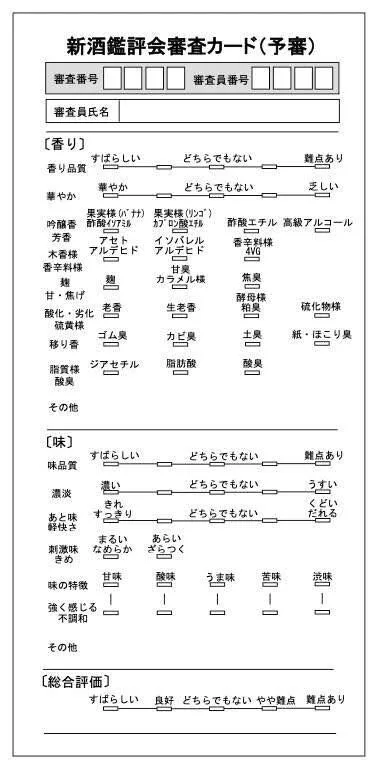 新酒鑑評会審査カード（予審）
審査番号 審査員番号
審査員氏名
〔香り〕
すばらしい どちらでもない 難点あり
香り品質
華やか どちらでもない 乏しい
華やか
果実様（バナナ） 果実様（リンゴ）
吟醸香 酢酸イソアミル カプロン酸エチル 酢酸エチル 高級アルコール
芳香 アセト イソバレル 香辛料様
木香様 アルデヒド アルデヒド 4VG
香辛料様
甘臭
麹 麹 カラメル様 焦臭
甘・焦げ
酵母様
酸化・劣化 老香 生老香 粕臭 硫化物様
硫黄様
移り香 ゴム臭 カビ臭 土臭 紙・ほこり臭
脂質様 ジアセチル 脂肪酸 酸臭
酸臭
その他
〔味〕
すばらしい どちらでもない 難点あり
味品質
濃い どちらでもない うすい
濃淡
きれ くどい
あと味 すっきり どちらでもない だれる
軽快さ
まるい あらい
刺激味 なめらか ざらつく
きめ
味の特徴 甘味 酸味 うま味 苦味 渋味
強く感じる
不調和
その他
〔総合評価〕
すばらしい 良好 どちらでもない やや難点 難点あり